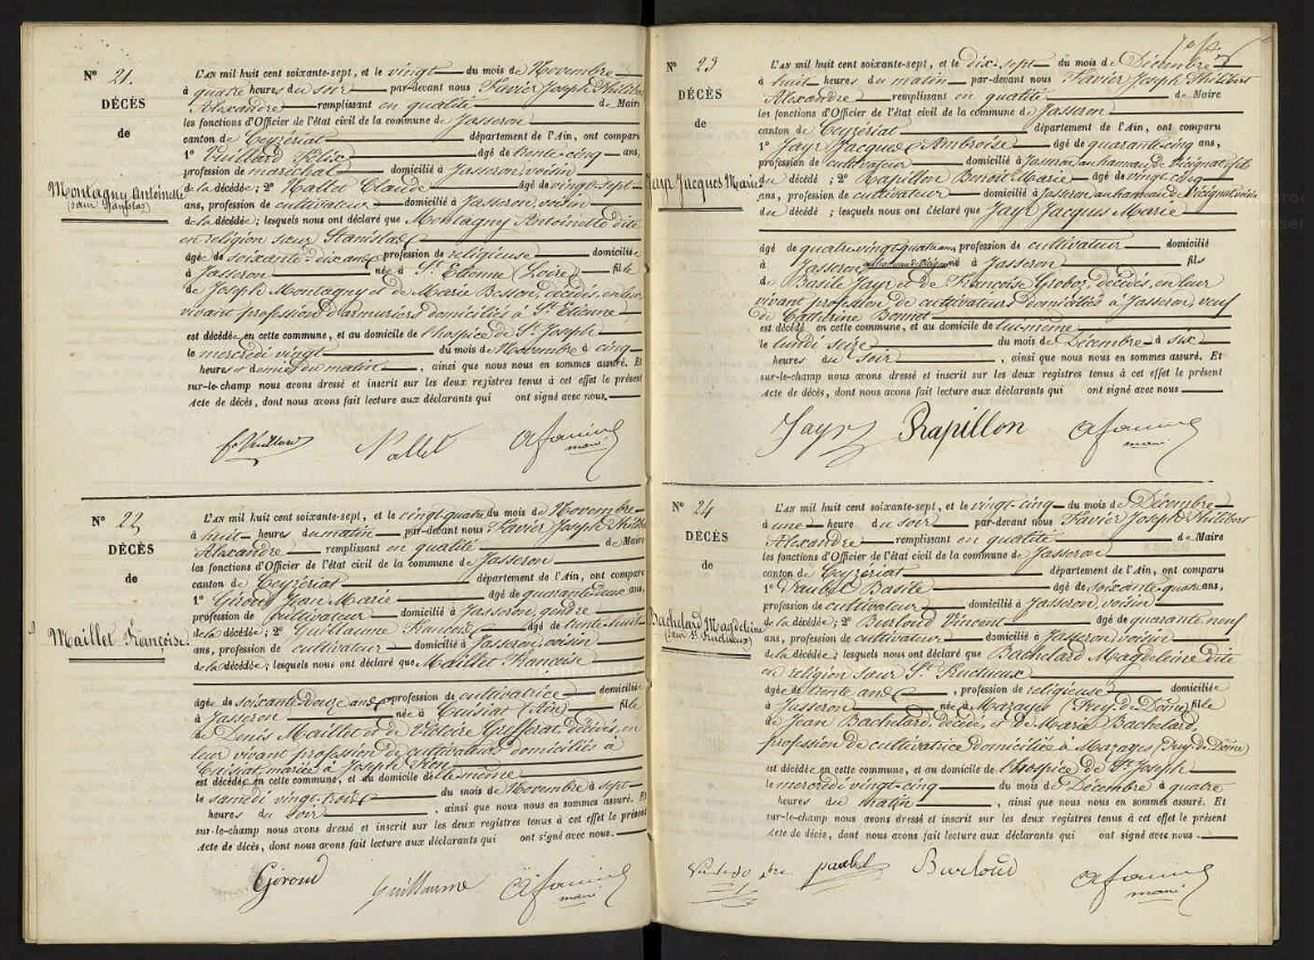 N° 21.
DÉCÈS
de
Montagny Antoinette
(sœur Stanislas)
L'AN mil huit cent soixante-sept, et le vingt du mois de Novembre
à quatre heures du soir par-devant nous Favier Joseph Philibert
Alexandre remplissant en qualité de Maire
les fonctions d'Officier de l'état civil de la commune de Jasseron
canton de Ceyzériat département de l'Ain, ont comparu
1° Vuillard Félix âgé de trente-cinq ans,
profession de maréchal domicilié à Jasseron, voisin
de la décédée; 2° Nallet Claude âgé de vingt-sept
ans, profession de cultivateur domicilié à Jasseron, voisin
de la décédée; lesquels nous ont déclaré que Montagny Antoinette dite
en religion sœur Stanislas
âgée de soixante-dix ans profession de religieuse domiciliée
à Jasseron née à St. Etienne (Loire) fille
de Joseph Montagny et de Marie Besson, décédés, en leur
vivant profession d'armuriers domiciliés à St. Etienne
est décédée en cette commune, et au domicile de l'hospice de St. Joseph
le mercredi vingt du mois de Novembre à cinq
heures et demie du matin, ainsi que nous nous en sommes assuré. Et
sur-le-champ nous avons dressé et inscrit sur les deux registres tenus à cet effet le présent
Acte de décès, dont nous avons fait lecture aux déclarants qui ont signé avec nous.
Nallet
maire
N° 22
DÉCÈS
de
Maillet Françoise.
L'AN mil huit cent soixante-sept, et le vingt-quatre du mois de Novembre
à huit heures du matin par-devant nous Favier Joseph Philibert
Alexandre remplissant en qualité de Maire
les fonctions d'Officier de l'état civil de la commune de Jasseron
canton de Ceyzériat département de l'Ain, ont comparu
1° Giroud Jean Marie âgé de quarante deux ans,
profession de cultivateur domicilié à Jasseron, gendre
de la décédée; 2° Guillaume François âgé de trente-huit
ans, profession de cultivateur domicilié à Jasseron, voisin
de la décédée; lesquels nous ont déclaré que Maillet Françoise
âgée de soixante-douze ans profession de cultivatrice domiciliée
à Jasseron née à Cuisiat (Ain) fille
de Denis Maillet et de Victoire décédés, en
leur vivant profession de cultivateurs domiciliés à
Cuisiat, mariée à Joseph
est décédée en cette commune, et au domicile d'elle-même
le samedi vingt-trois du mois de Novembre à sept
heures du soir, ainsi que nous nous en sommes assuré. Et
sur-le-champ nous avons dressé et inscrit sur les deux registres tenus à cet effet le présent
Acte de décès, dont nous avons fait lecture aux déclarants qui ont signé avec nous.
Giroud
Guillaume
maire
N° 23
DÉCÈS
de
Jayr Jacques Marie
L'AN mil huit cent soixante-sept, et le dix-sept du mois de Décembre
à huit heures du matin par-devant nous Favier Joseph Philibert
Alexandre remplissant en qualité de Maire
les fonctions d'Officier de l'état civil de la commune de Jasseron
canton de Ceyzériat département de l'Ain, ont comparu
1° Jayr Jacques Ambroise âgé de quarante-cinq ans,
profession de cultivateur domicilié à Jasseron au hameau de fils
du décédé; 2° Rapillon Benoit Marie âgé de vingt-cinq
ans, profession de cultivateur domicilié à Jasseron au hameau de voisin
du décédé; lesquels nous ont déclaré que Jayr Jacques Marie
âgé de quatre-vingt-quatre ans, profession de cultivateur domicilié
à Jasseron né à Jasseron fils
de Basile Jayr et de Françoise Groboz, décédés, en leur
vivant profession de cultivateurs domiciliés à Jasseron, veuf
de Catherine Bonnet
est décédé en cette commune, et au domicile de lui-même
le lundi seize du mois de Décembre à six
heures du soir, ainsi que nous nous en sommes assuré. Et
sur-le-champ nous avons dressé et inscrit sur les deux registres tenus à cet effet le présent
Acte de décès, dont nous avons fait lecture aux déclarants qui ont signé avec nous
Jayr
Rapillon
maire
N° 24
DÉCÈS
de
Bachelard Magdeleine
L'AN mil huit cent soixante-sept, et le vingt-cinq du mois de Décembre
à une heure du soir par-devant nous Favier Joseph Philibert
Alexandre remplissant en qualité de Maire
les fonctions d'Officier de l'état civil de la commune de Jasseron
canton de Ceyzériat département de l'Ain, ont comparu
1° Paubel Basile âgé de soixante-quatre ans,
profession de cultivateur domicilié à Jasseron, voisin
de la décédée; 2° Burloud Vincent âgé de quarante neuf
ans, profession de cultivateur domicilié à Jasseron, voisin
de la décédée; lesquels nous ont déclaré que Bachelard Magdeleine dite
en religion sœur St.
âgée de trente ans, profession de religieuse domiciliée
à Jasseron née à Mazayes (Puy-de-Dôme) fille
de Jean Bachelard, décédé et de Marie Bachelard,
profession de cultivatrice domiciliée à Mazayes (Puy-de-Dôme)
est décédée en cette commune, et au domicile de l'hospice de St. Joseph
le mercredi vingt-cinq du mois de Décembre à quatre
heures du matin, ainsi que nous nous en sommes assuré. Et
sur-le-champ nous avons dressé et inscrit sur les deux registres tenus à cet effet le présent
Acte de décès, dont nous avons fait lecture aux déclarants qui ont signé avec nous.
paubel
Burloud
maire